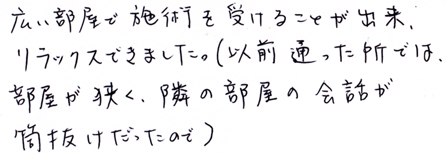 広い部屋で施術を受けることが出来、
リラックスできました。(以前通った所では、
部屋が狭く、隣の部屋の会話が
筒抜けだったので)